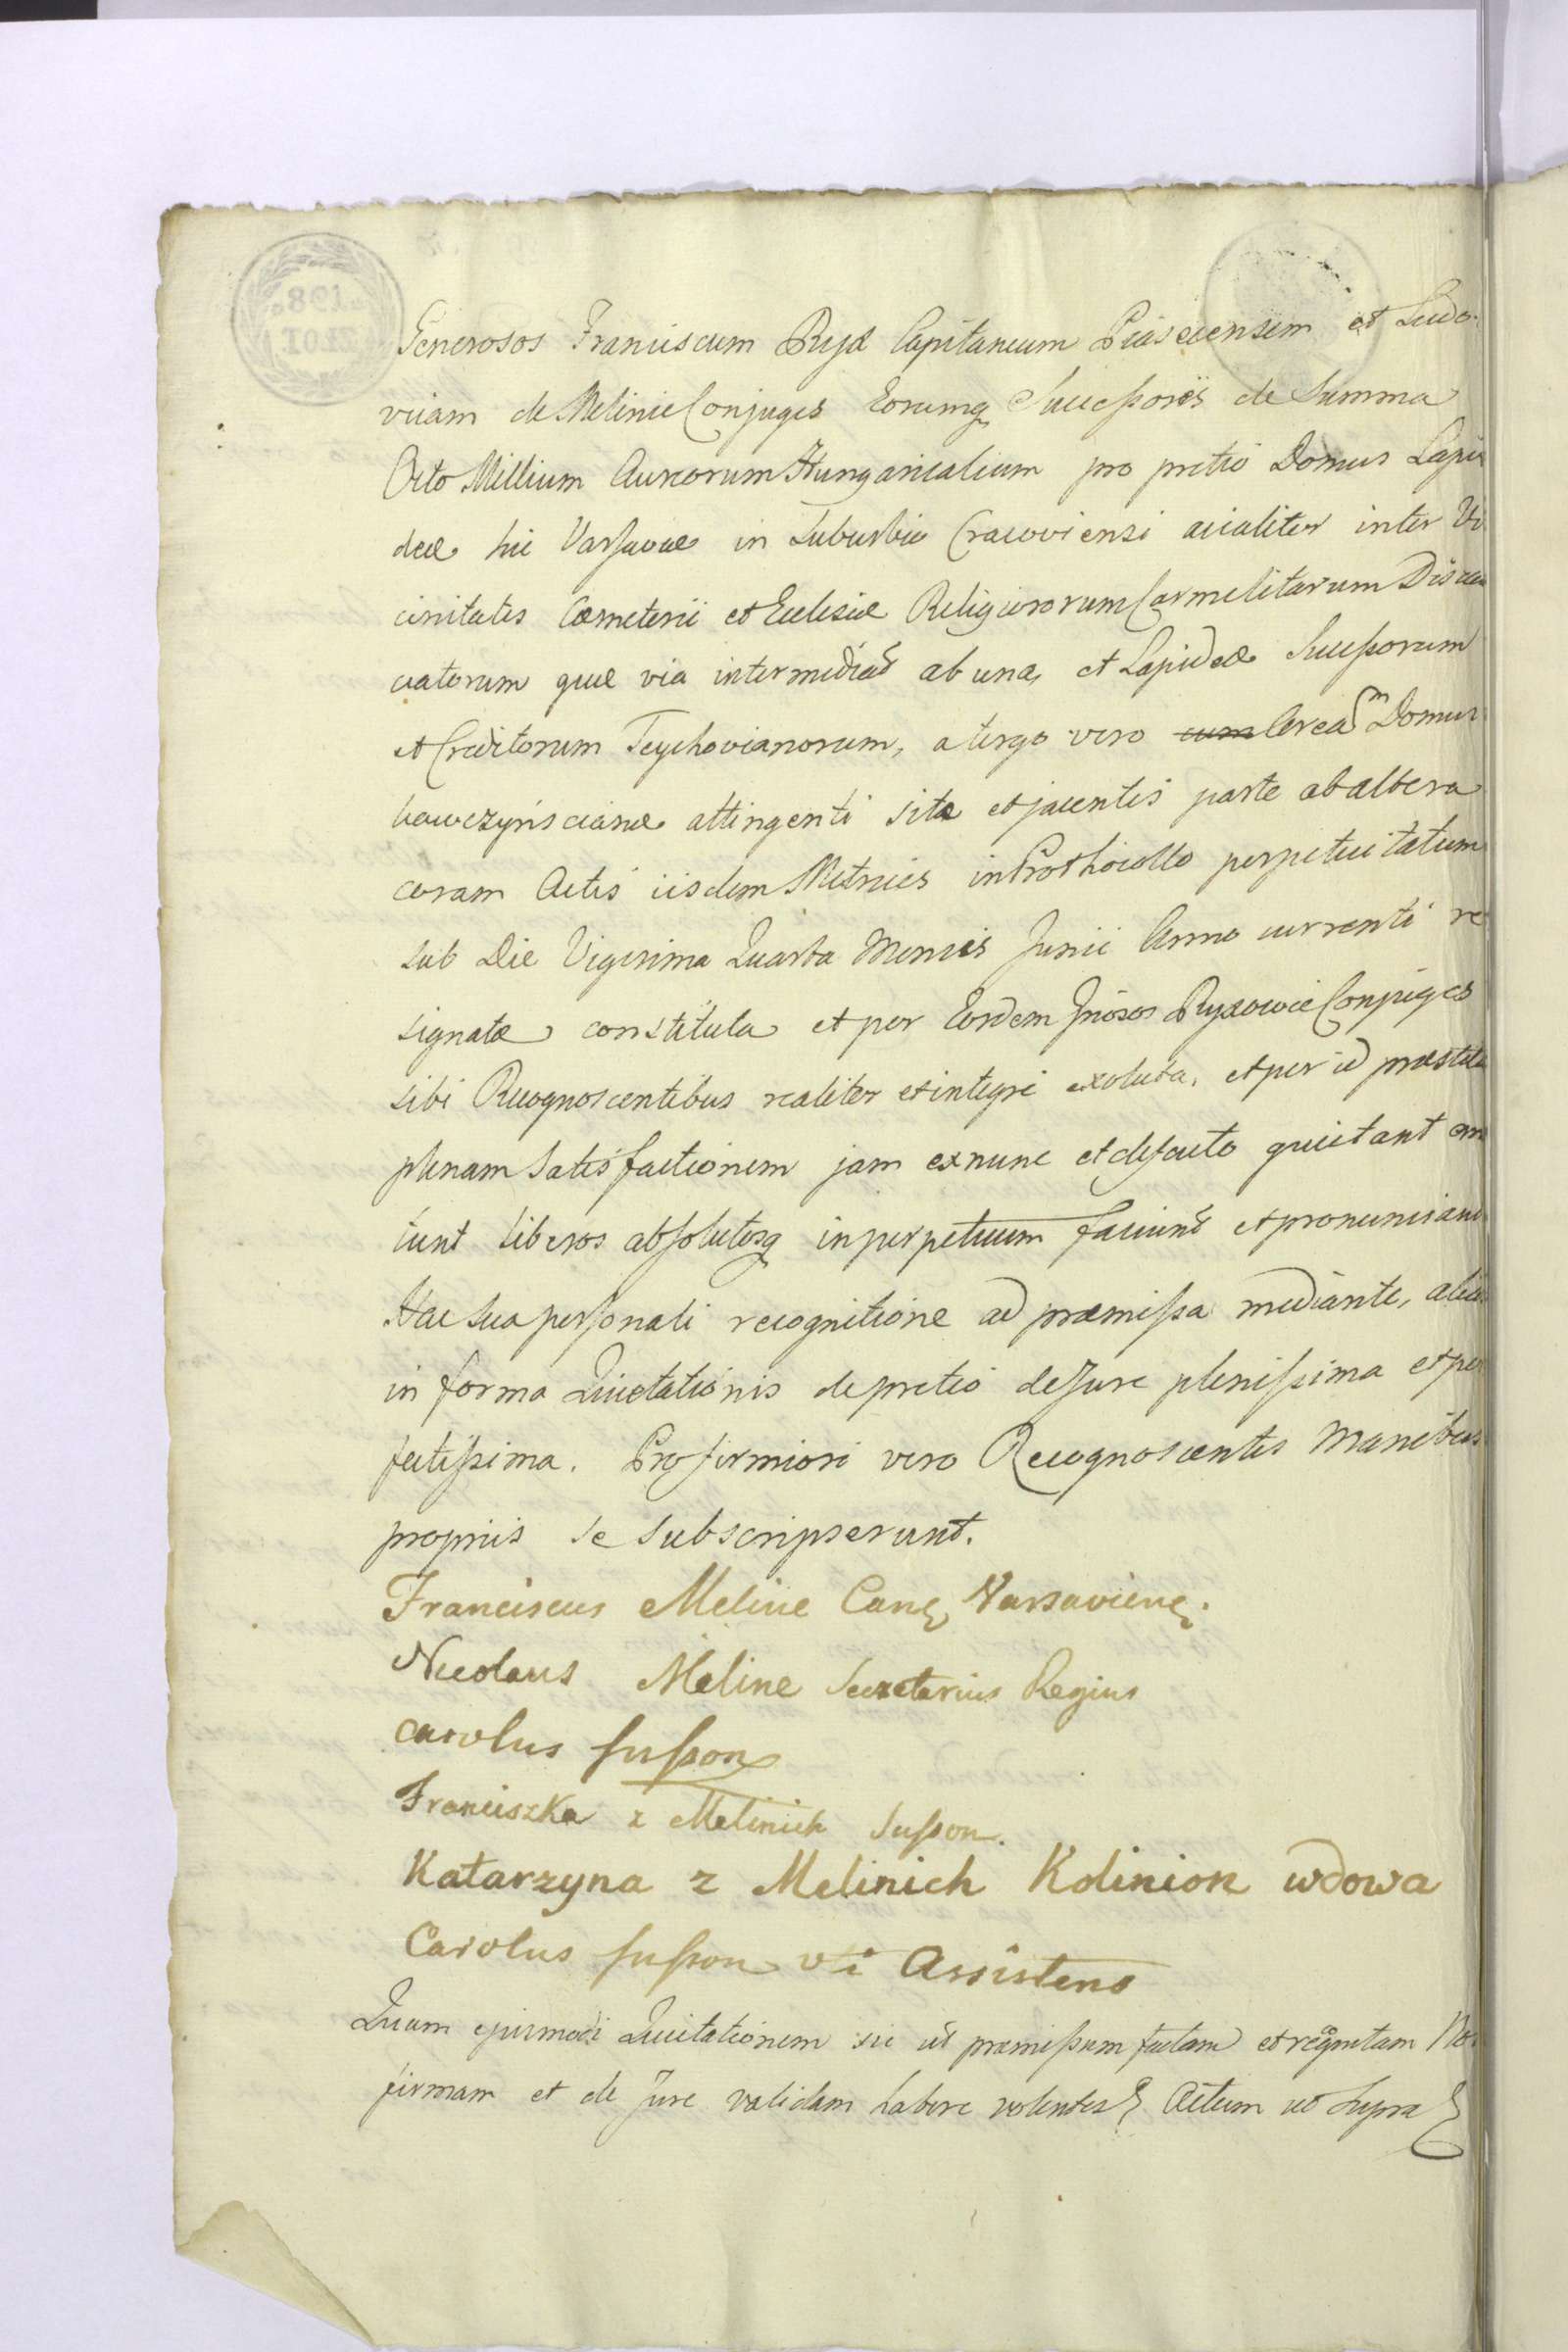 Generosos Franciscum Ryx Capitaneum Piasecensem et Ludo-
vicam de Melinie Conjuges Eorumq Successores de Summa
Octo Millium Aureorum Hungaricalium pro pretio Domus Lapi
deæ hic Varsaviæ in Suburbio Cracoviensi acialiter inter Vi
cinitates Cœmeterii et Ecclesiæ Religiosorum Carmelitarum Discal
ceatorum quæ via intermediat ab una, et Lapideæ Successorum
et Creditorum Teychovianorum, a tergo vero cum Area Domus
sitæ et jacentis parte ab altera attingenti
coram Actis iisdem Metrices in Prothocollo perpetuitatum
sub Die Vigesima Quarta Mensis Junii Anno currenti re
signatæ constituta et per Eosdem Gnosos Ryxowie Conjuges
sibi Recognoscentibus realiter et integre exoluta, et per id præstita
plenam Satisfactionem jam ex nunc et de facto quietant
iunt liberos absolutosq in perpetuum faciunt et pronunciant
Hac sua personali recognitione ad præmissa mediante,
in forma Quietationis de pretio de Jure plenissima et per
fectissima. Pro firmiori vero Recognoscentes Manibus
propriis se subscripserunt.
Franciscus Meline Can Varsavien.
Nicolaus Meline Secretarius Regius
Carolus Susson
Franciszka z Melinich Susson.
Katarzyna z Melinich Kolinion wdowa
Carolus Susson uti Assistens
Quam ejusmodi Quietationem sic ut præmissum factam et recgnitam
firmam et de Jure validam habere volentes Actum ut Supra